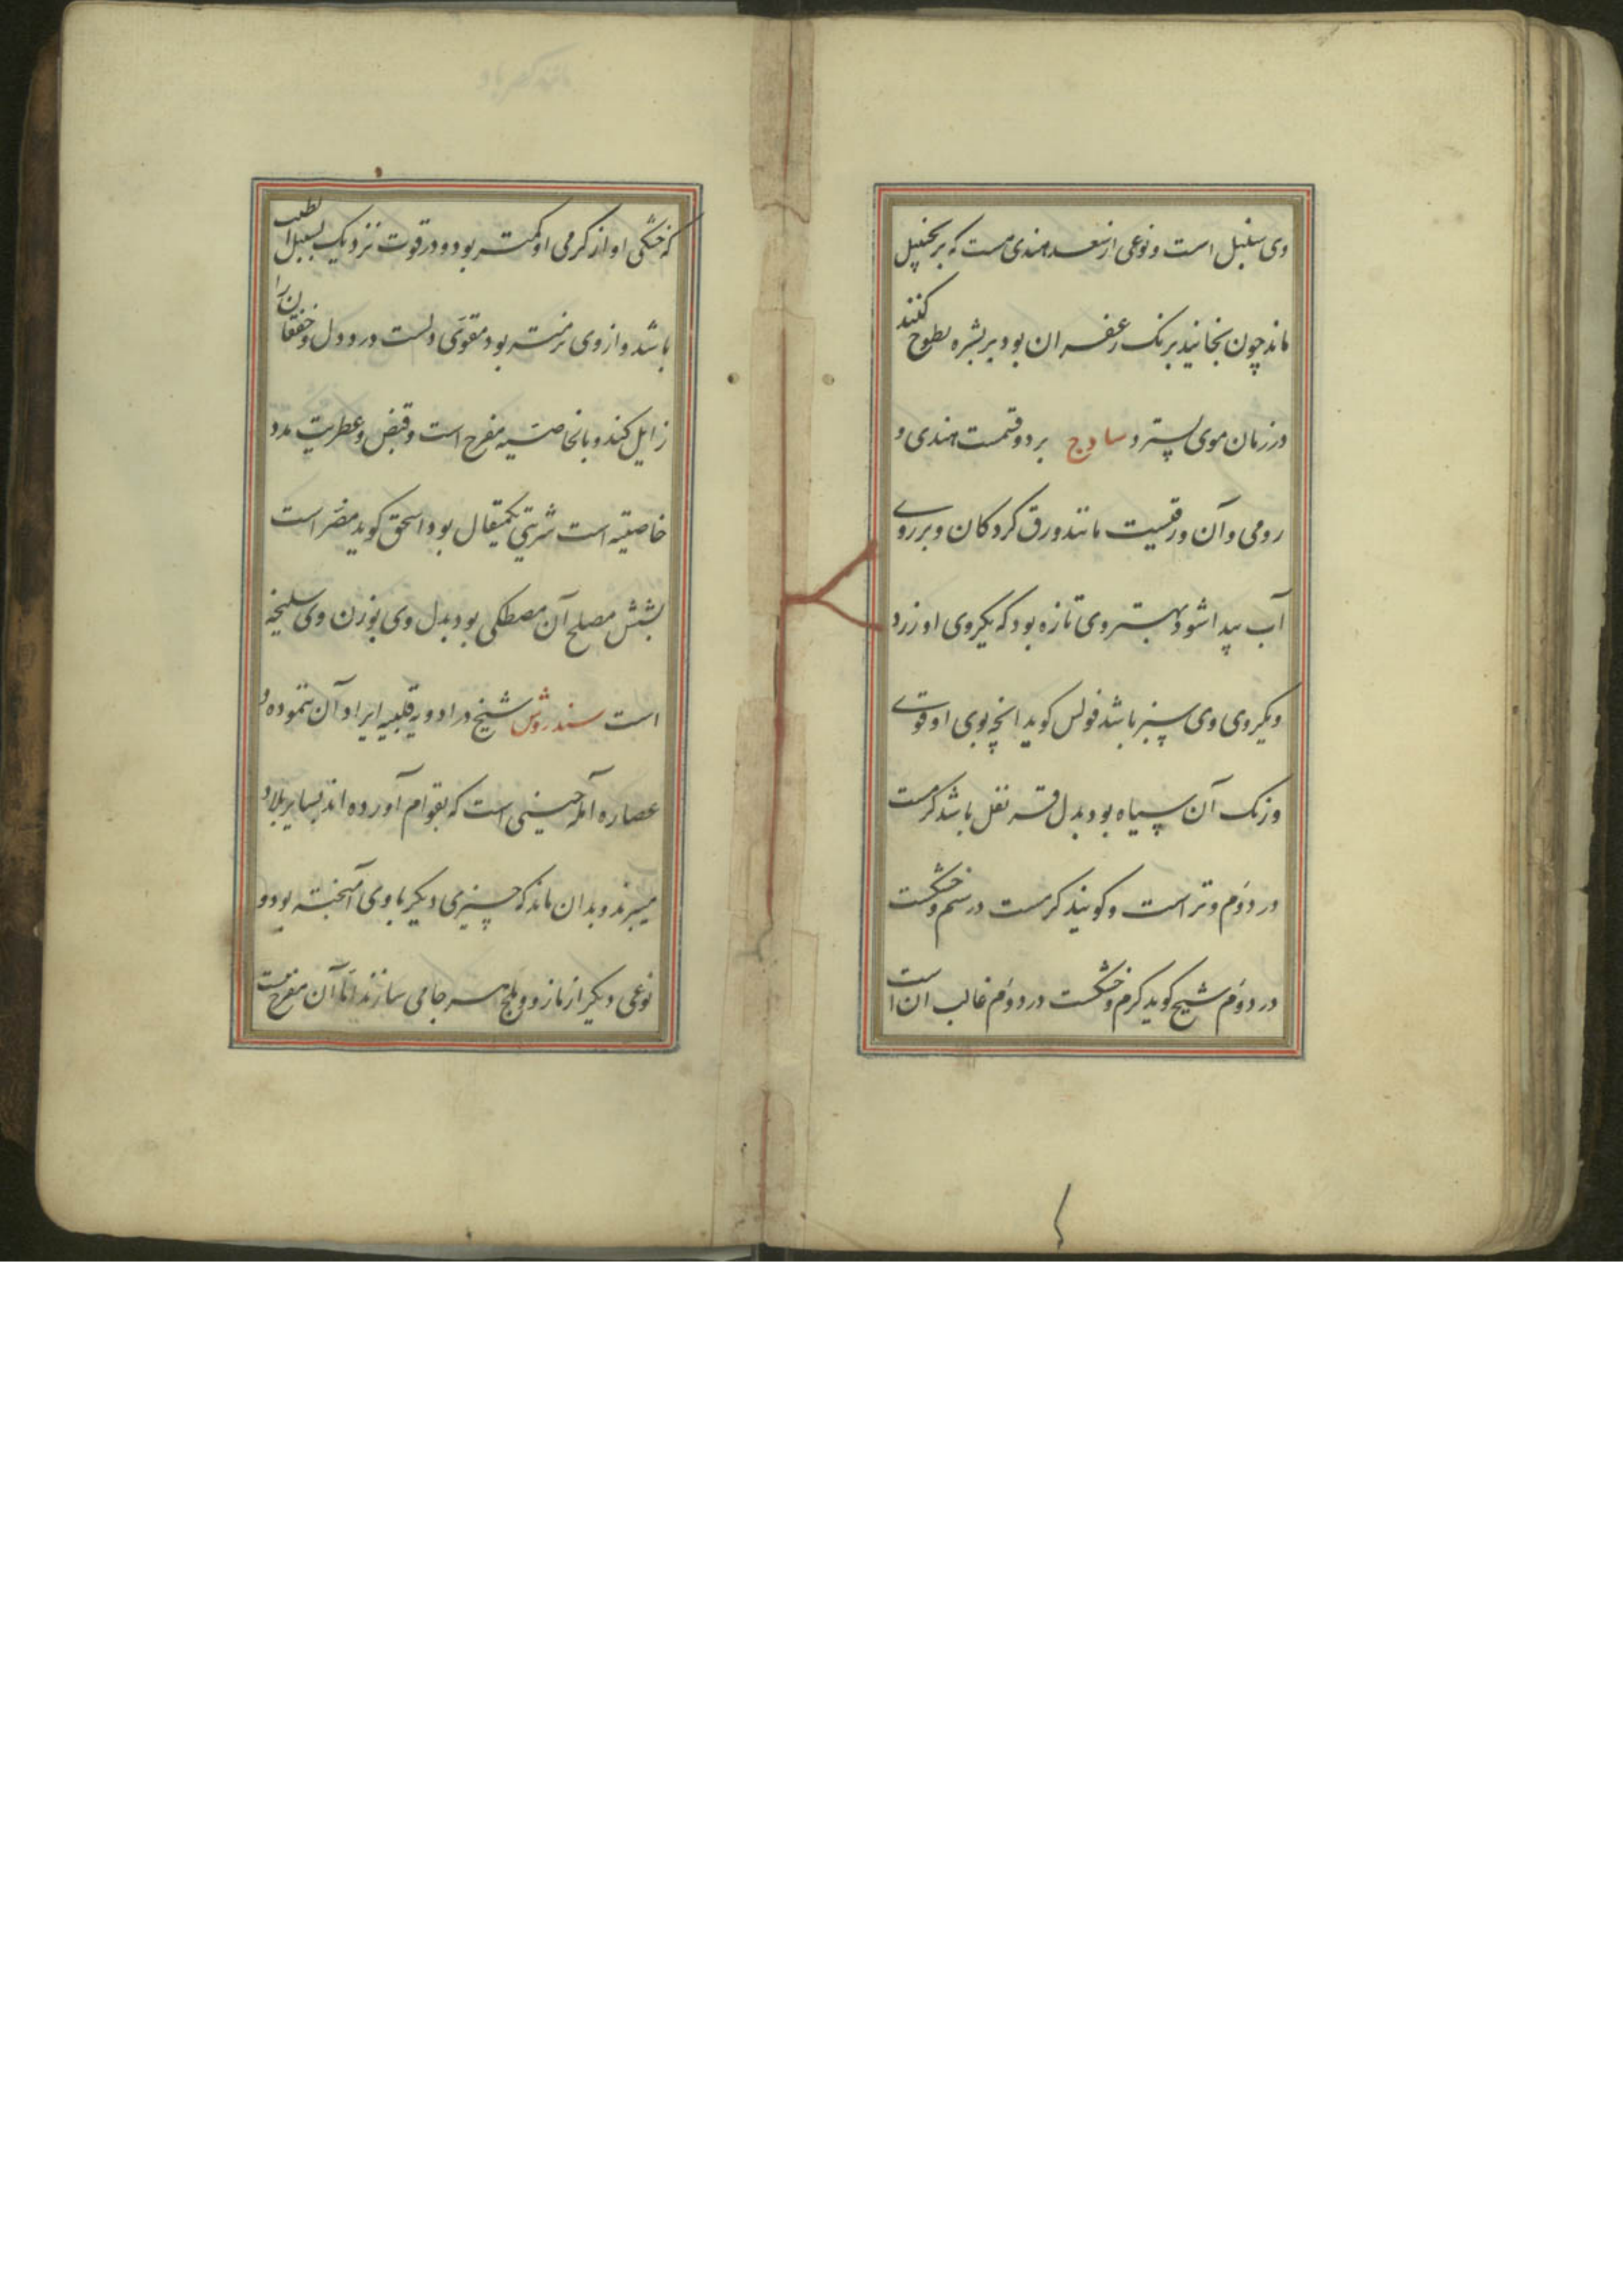 وی سنبل است و نوعی از سعد هندی هست که بزنجبیل
ماند چون بخایند برنک زعفران بود بر بشره لطوخ کنند
درزمان موی بسترد سادج بر دو قسمت هندی و
رومی و آن ورقیست مانند ورق کردکان و بر روی
آب پیدا شود بهتر وی تازه بود که یکروی او زرد
و یکروی وی سبز باشد فولس کوید انچه بوی او قوی
و رنک آن سیاه بود بدل قرنفل باشد کرمست
در دوم و تر است و کویند کرمست در سیم و خشکست
در دوم شیخ کوید کرم و خشکست در دوم غالب آن است
که خشکی او از کرمی او کمتر بود و در قوت نزدیک بسنبل الطیب
باشد و از وی نرمتر بود مقوی دلست درد دل و خفقان را
زایل کند و بالخاصیه مفرح است و قبض و عطریت مدد
خاصیته است شربتی یکمثقال بود اسحق کوید مضر است
بشش مصلح آن مصطکی بود بدل وی بوزن وی سلیخه
است سندروش شیخ در ادویه قلبیه ایراد آن ننموده و
عصاره آمله چینی است که بقوام آورده اند بسایر بلاد
میبرند و بدان ماند که چیزی دیکر با وی آمیخته بود و
نوعی دیکر از مازو و بلح هر جامی سازند اما آن مفرح نیست